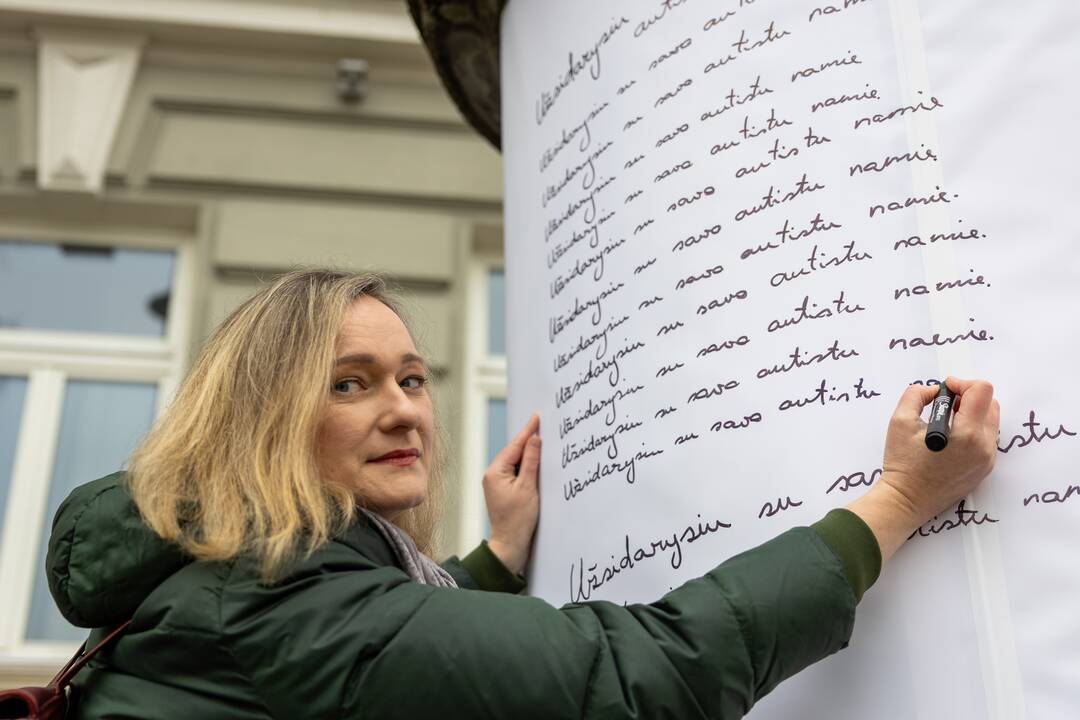 Užsidarysiu autistu
Užsidarysiu su savo autistu namie.
Užsidarysiu su savo autistu namie.
Užsidarysiu su savo autistu namie.
Užsidarysiu su savo autistu namie.
Užsidarysiu su savo autistu namie.
Užsidarysiu su savo autistu namie.
Užsidarysiu su savo autistu namie.
Užsidarysiu su savo autistu namie.
Užsidarysiu su savo autistu namie.
Užsidarysiu su savo autistu naemie.
Užsidarysiu su savo autistu na
Užsidarysiu su sav istu
istu nam